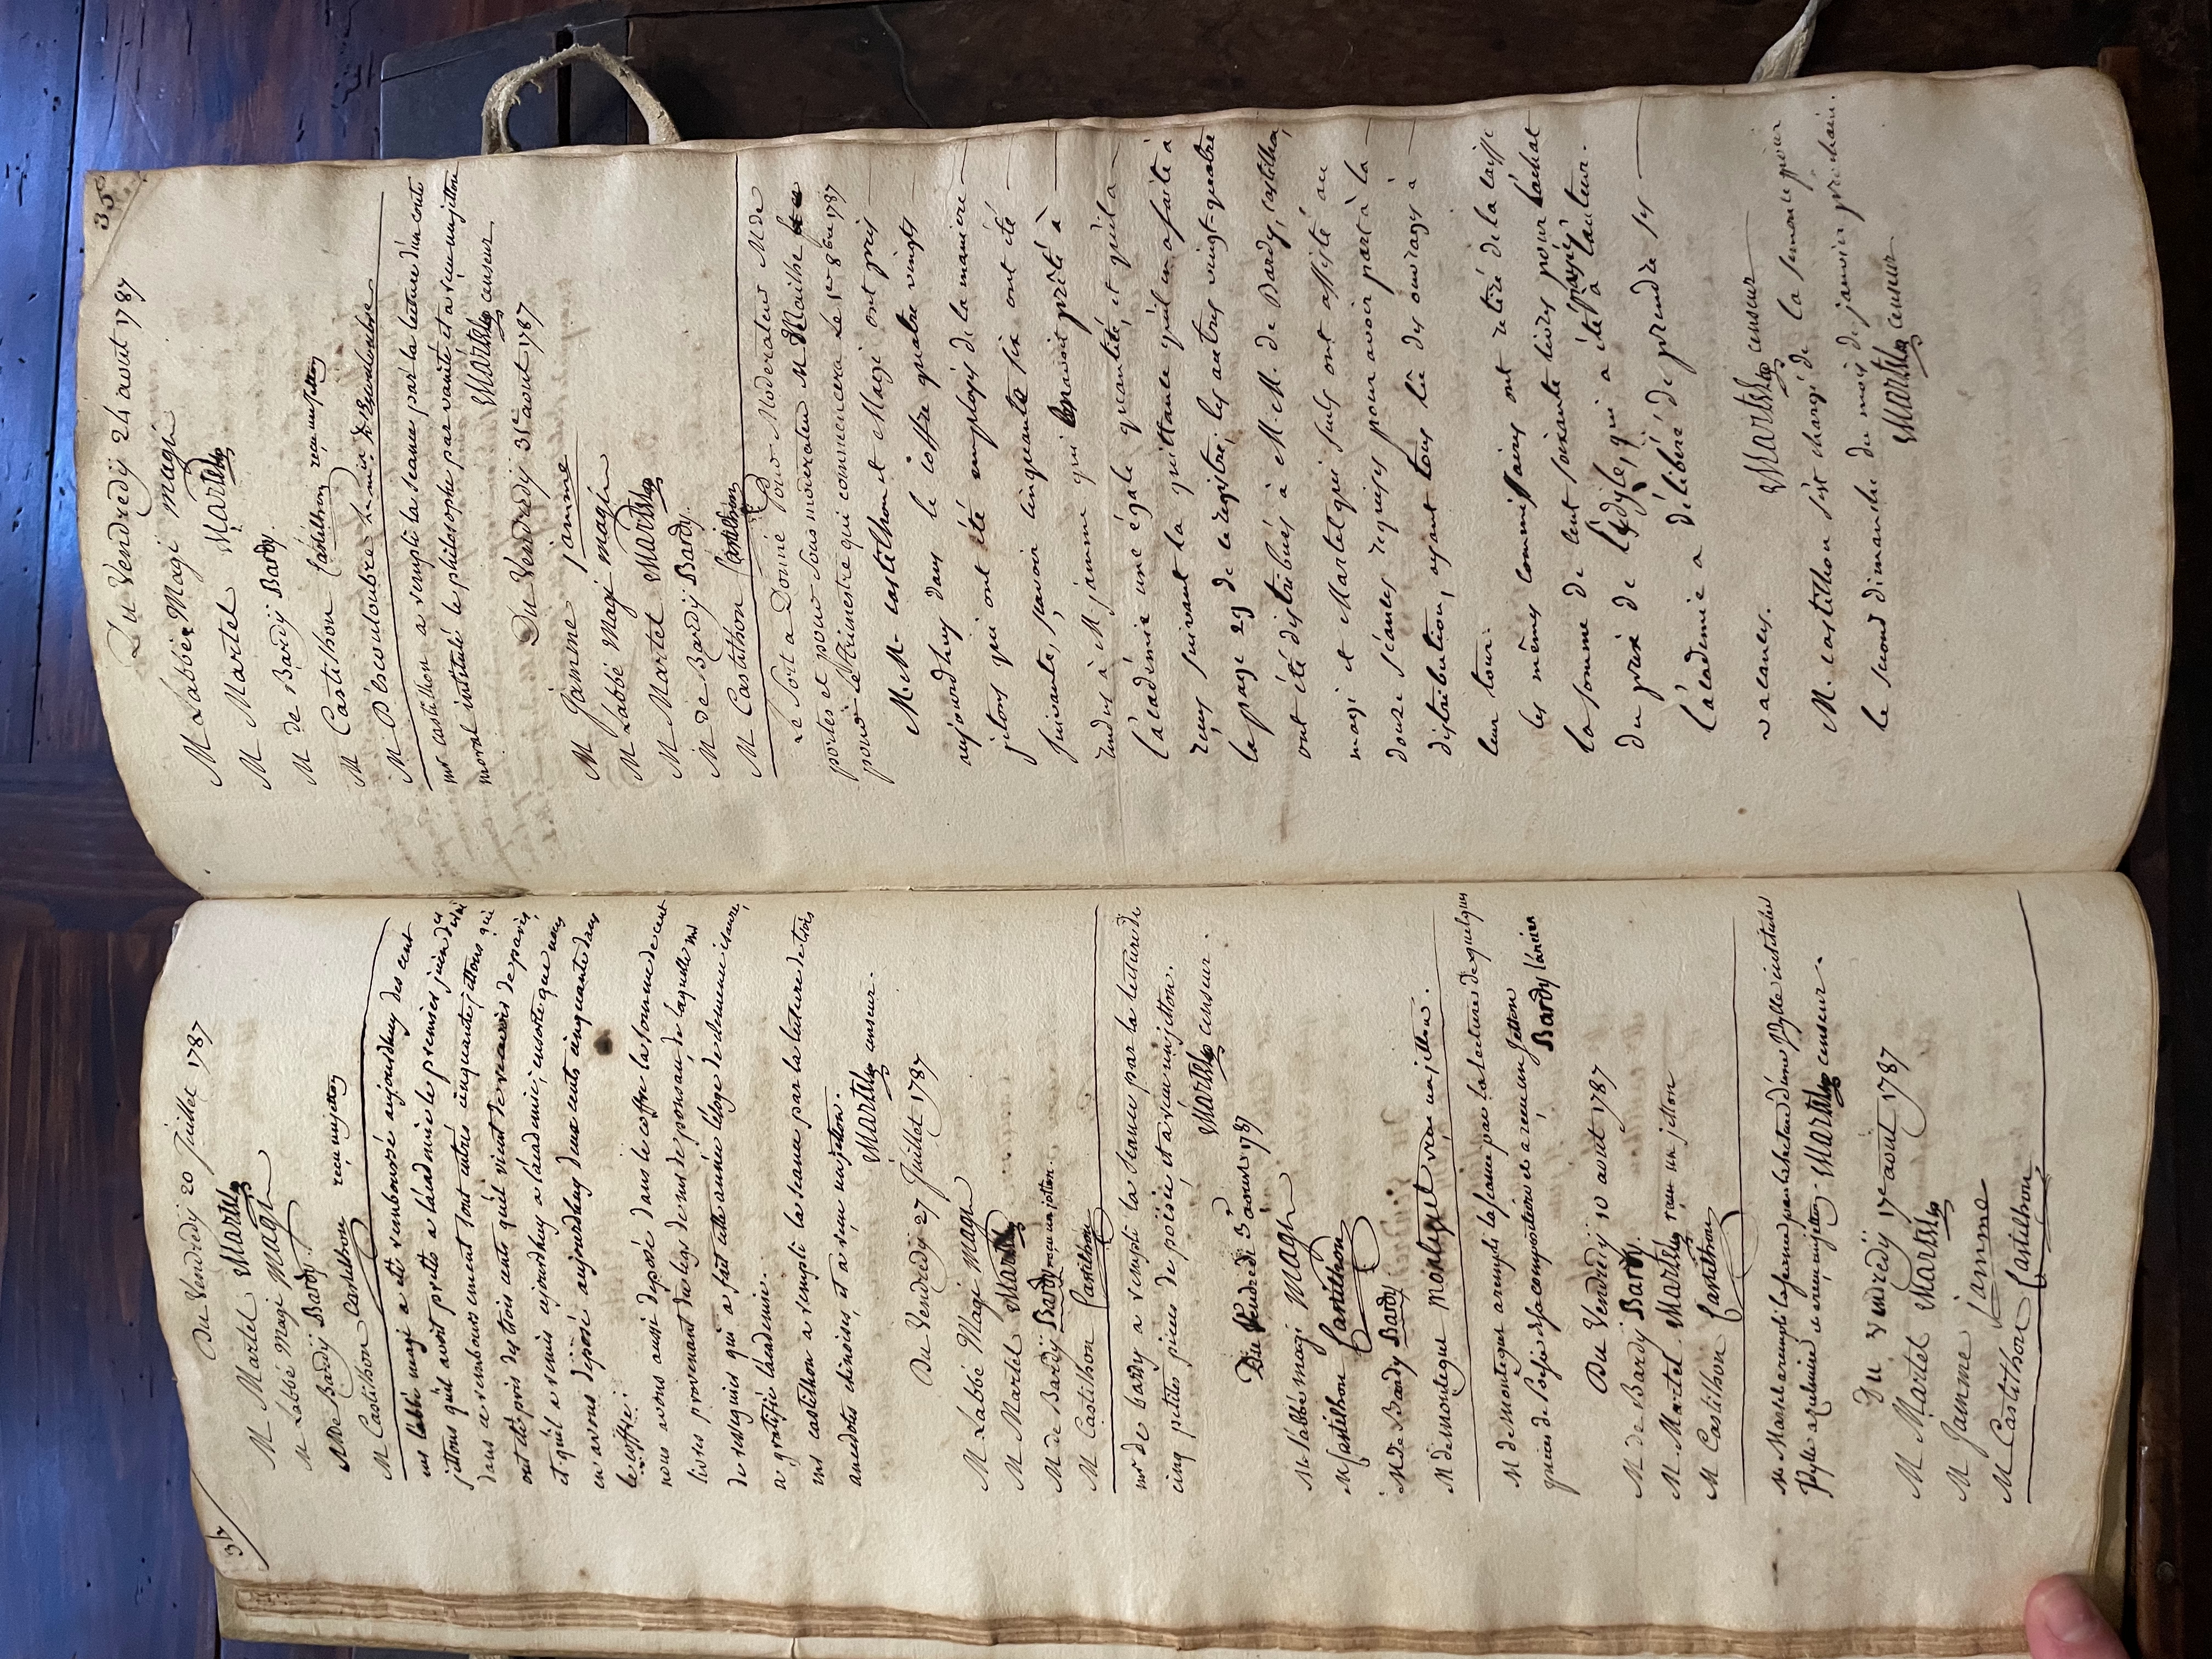 34
Du Vendredy 20 juillet 1787
M Martel Martel
M Labbé Magi magi
M De Bardy Bardy.
M Castilhon Castilhon receu un jetton
mr labbé magi a eté remboursé aujourdhuy des cent
jettons quil avoit pretés a lacademie le premier juin
dans ce remboursement sont entrés cinquante jettons qui
ont eté pris des trois cents quil vient de recevoir de paris,
et quil a remis aujourdhuy a lacademie; ensorte que nous
en avons deposé aujourdhuy deux cents cinquante dans
le coffre.
nous avons aussi deposé dans le coffre la somme de cent
livres provenant du legs de mr de ponsan, de laquelle mr
de resseguier qui a fait cette année leloge de clemence isaure,
a gratifié lacademie.
mr castilhon a rempli la seance par la lecture de trois
anecdotes chinoises, et a receu un jetton.
Martel censeur.
Du Vendredy 27 Juillet 1787
M Labbé Magi magi
M Martel Martel
M de Bardy Bardy receu un jetton.
M Castilhon Castilhon
mr de bardy a rempli la seance par la lecture de
cinq petites pieces de poësie, et a receu un jetton.
Martel censeur.
Du Vendredi 3 aout 1787
Mr l'abbé magi Magi
M Castilhon Castilhon
M de Bardy Bardy.
M de Montegut Montegut receu un jetton.
M de Montegut a rempli la seance par la lecture de quelques
pieces de Poësie de sa composition et a receu un Jetton
Bardy l'ancien
Du Vendredy 10 aout 1787
M de Bardy Bardy.
M Martel Martel receu un jetton
M Castilhon Castilhon
Mr Martel a rempli la seance par la lecture d'une Idylle intitulée
Idylle a zelmire et a receu un jetton. Martel censeur.
Du vendredy 17e aout 1787
M Martel Martel
M Jamme Jamme
M Castilhon Castilhon
35
Du Vendredy 24 aout 1787
M Labbé Magi magi
M Martel Martel
M de Bardy Bardy.
M Castilhon Castilhon receu un jetton
M D'escouloubre
mr castilhon a rempli la seance par la lecture d'un conte
moral intitulé le philosophe par vanité et a receu un jetton
Martel censeur
Du Vendredy 31e aout 1787
M Jamme Jamme
M Labbé Magi magi
M Martel Martel
M de Bardy Bardy.
M Castilhon Castilhon
Le Sort a Donné Pour Moderateur M de
portes et pour Sous moderateur M Mailhe
pour le Trimestre qui commencera Le 1er 8bre 1787
M.M. castilhon et Magi ont pris
aujourdhuy dans le coffre quatre vingts
jetons qui ont été employés de la maniere
suivante, savoir cinquante six ont été
rendus à M. jamme qui avoit prêté à
l'académie une égale quantité, et qu'il a
reçus suivant la quittance qu'il en a faite à
la page 29 de ce registre, les autres vingt-quatre
ont été distribués à M.M. de Bardy, castilhon,
magi et Martel qui seuls ont assisté au
douze séances requises pour avoir part à la
distribution, ayant tous lû des ouvrages à
leur tour.
les mêmes commissaires ont retiré de la caisse
la somme de cent soixante livres pour l'achat
du prix de l'idyle, qui a été payé à l'auteur.
L'academie a délibéré de prendre ses
vacances. Martel censeur
M. castilhon s'est chargé de la semonce pour
le second dimanche du mois de janvier prochain.
Martel censeur